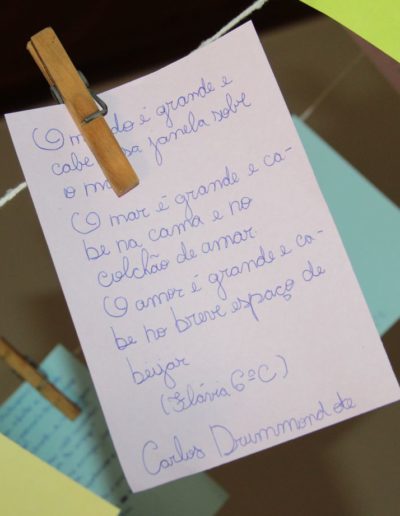 O mundo é grande e
cabe janela sobre
o mar
O mar é grande e ca-
be na cama e no
colchão de amar.
O amor é grande e ca-
be no breve espaço de
beijar
(Flávia 6º C)
Carlos Drummond de